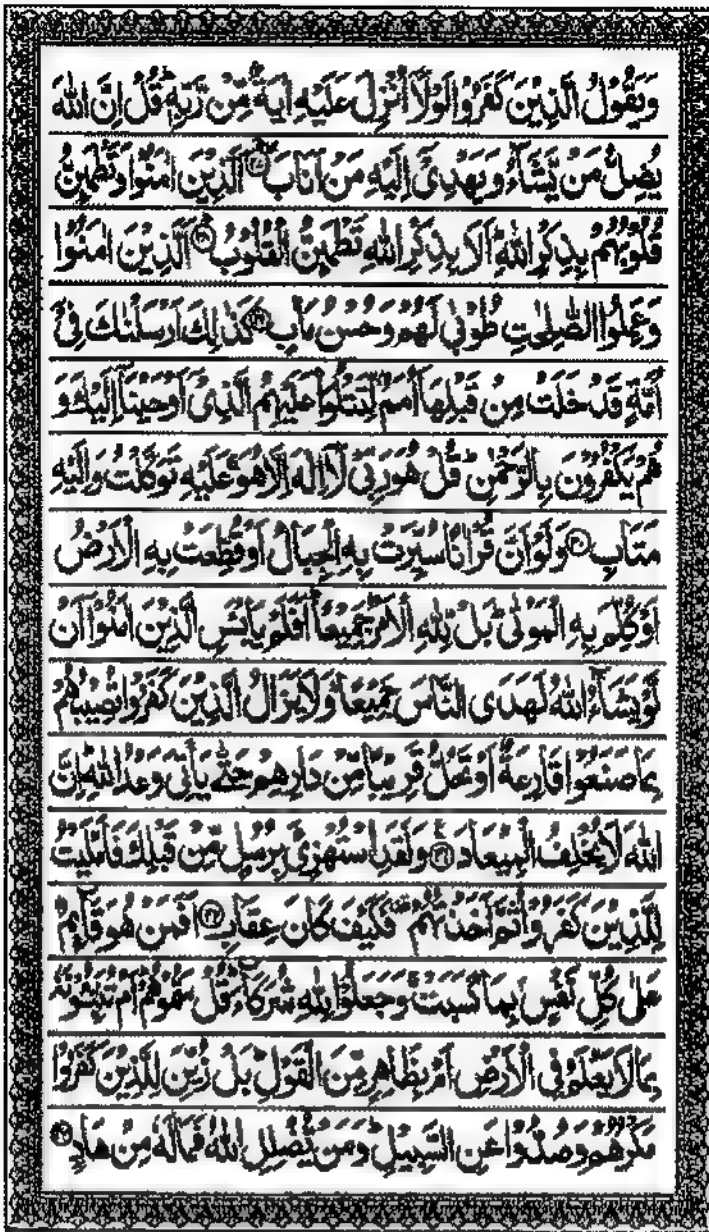 وَيَقُوْلُ الَّذِيْنَ كَفَرُوْا لَوْلَاۤ اُنْزِلَ عَلَيْهِ اٰيَةٌ مِّنْ رَّبِّهٖ ؕ قُلْ اِنَّ اللّٰهَ
يُضِلُّ مَنْ يَّشَآءُ وَيَهْدِىْۤ اِلَيْهِ مَنْ اَنَابَ ۝۲۷ اَلَّذِيْنَ اٰمَنُوْا وَتَطْمَئِنُّ
قُلُوْبُهُمْ بِذِكْرِ اللّٰهِ ؕ اَلَا بِذِكْرِ اللّٰهِ تَطْمَئِنُّ الْقُلُوْبُ ۝۲۸ اَلَّذِيْنَ اٰمَنُوْا
وَعَمِلُوا الصّٰلِحٰتِ طُوْبٰى لَهُمْ وَحُسْنُ مَاٰبٍ ۝۲۹ كَذٰلِكَ اَرْسَلْنٰكَ فِىْۤ
اُمَّةٍ قَدْ خَلَتْ مِنْ قَبْلِهَاۤ اُمَمٌ لِّتَتْلُوَا۟ عَلَيْهِمُ الَّذِىْۤ اَوْحَيْنَاۤ اِلَيْكَ وَ
هُمْ يَكْفُرُوْنَ بِالرَّحْمٰنِ ؕ قُلْ هُوَ رَبِّىْ لَاۤ اِلٰهَ اِلَّا هُوَ ۚ عَلَيْهِ تَوَكَّلْتُ وَاِلَيْهِ
مَتَابِ ۝۳۰ وَلَوْ اَنَّ قُرْاٰنًا سُيِّرَتْ بِهِ الْجِبَالُ اَوْ قُطِّعَتْ بِهِ الْاَرْضُ
اَوْ كُلِّمَ بِهِ الْمَوْتٰى ؕ بَلْ لِّلّٰهِ الْاَمْرُ جَمِيْعًا ؕ اَفَلَمْ يَايْـَٔسِ الَّذِيْنَ اٰمَنُوْۤا اَنْ
لَّوْ يَشَآءُ اللّٰهُ لَهَدَى النَّاسَ جَمِيْعًا ؕ وَلَا يَزَالُ الَّذِيْنَ كَفَرُوْا تُصِيْبُهُمْ
بِمَا صَنَعُوْا قَارِعَةٌ اَوْ تَحُلُّ قَرِيْبًا مِّنْ دَارِهِمْ حَتّٰى يَاْتِىَ وَعْدُ اللّٰهِ ؕ اِنَّ
اللّٰهَ لَا يُخْلِفُ الْمِيْعَادَ ۝۳۱ وَلَقَدِ اسْتُهْزِئَ بِرُسُلٍ مِّنْ قَبْلِكَ فَاَمْلَيْتُ
لِلَّذِيْنَ كَفَرُوْا ثُمَّ اَخَذْتُهُمْ ۫ فَكَيْفَ كَانَ عِقَابِ ۝۳۲ اَفَمَنْ هُوَ قَآئِمٌ
عَلٰى كُلِّ نَفْسٍۭ بِمَا كَسَبَتْ ۚ وَجَعَلُوْا لِلّٰهِ شُرَكَآءَ ؕ قُلْ سَمُّوْهُمْ ؕ اَمْ تُنَبِّئُوْنَهٗ
بِمَا لَا يَعْلَمُ فِى الْاَرْضِ اَمْ بِظَاهِرٍ مِّنَ الْقَوْلِ ؕ بَلْ زُيِّنَ لِلَّذِيْنَ كَفَرُوْا
مَكْرُهُمْ وَصُدُّوْا عَنِ السَّبِيْلِ ؕ وَمَنْ يُّضْلِلِ اللّٰهُ فَمَا لَهٗ مِنْ هَادٍ ۝۳۳